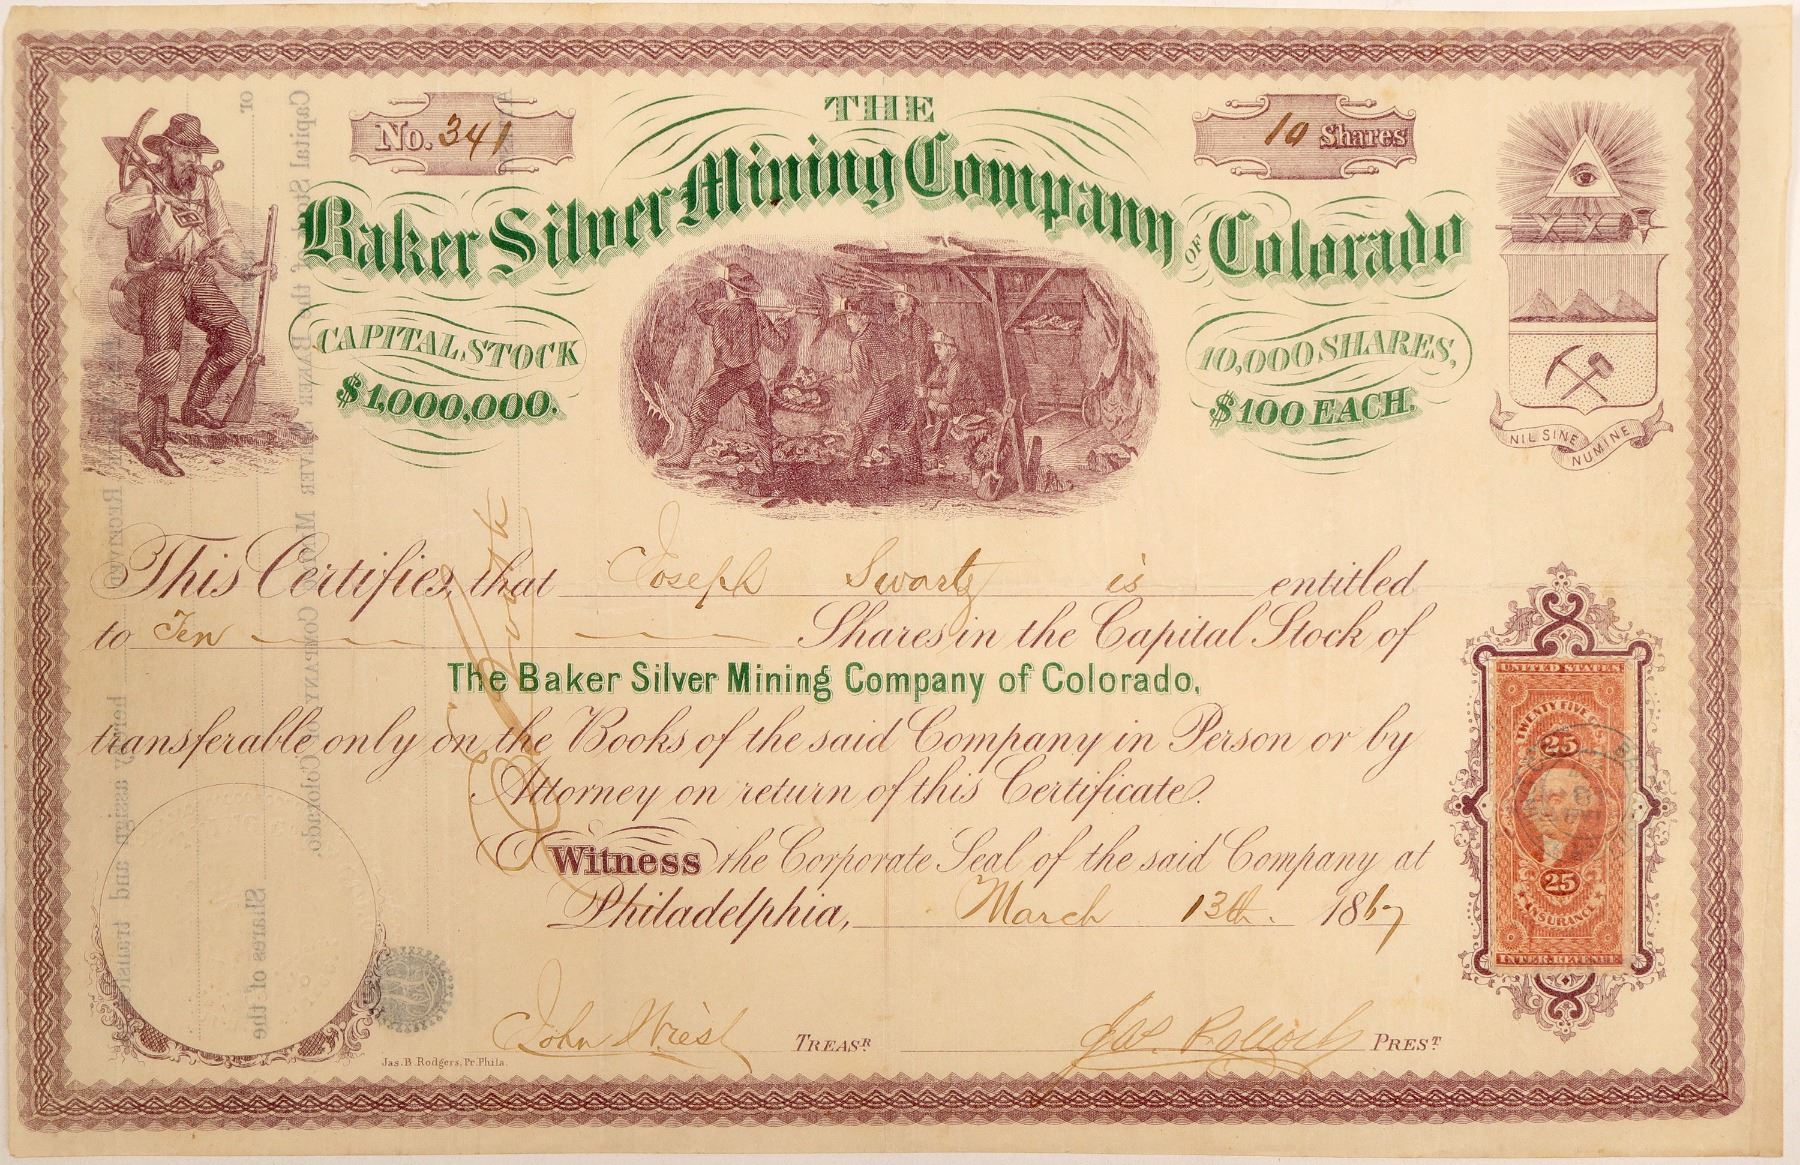 No. 341
THE
10 Shares
Baker Silver Mining Company OF Colorado
CAPITAL STOCK
$1,000,000.
10,000 SHARES,
$100 EACH.
NIL SINE NUMINE
This Certifies that Joseph Swartz is entitled
to Ten Shares in the Capital Stock of
The Baker Silver Mining Company of Colorado,
transferable only on the Books of the said Company in Person or by
Attorney on return of this Certificate.
Witness the Corporate Seal of the said Company at
Philadelphia, March 13th. 1867
John Wiest TREASR
Jas. PREST
Jas. B. Rodgers, Pr. Phila.
UNITED STATES
TWENTY FIVE CTS.
25
25
INSURANCE
INTER. REVENUE